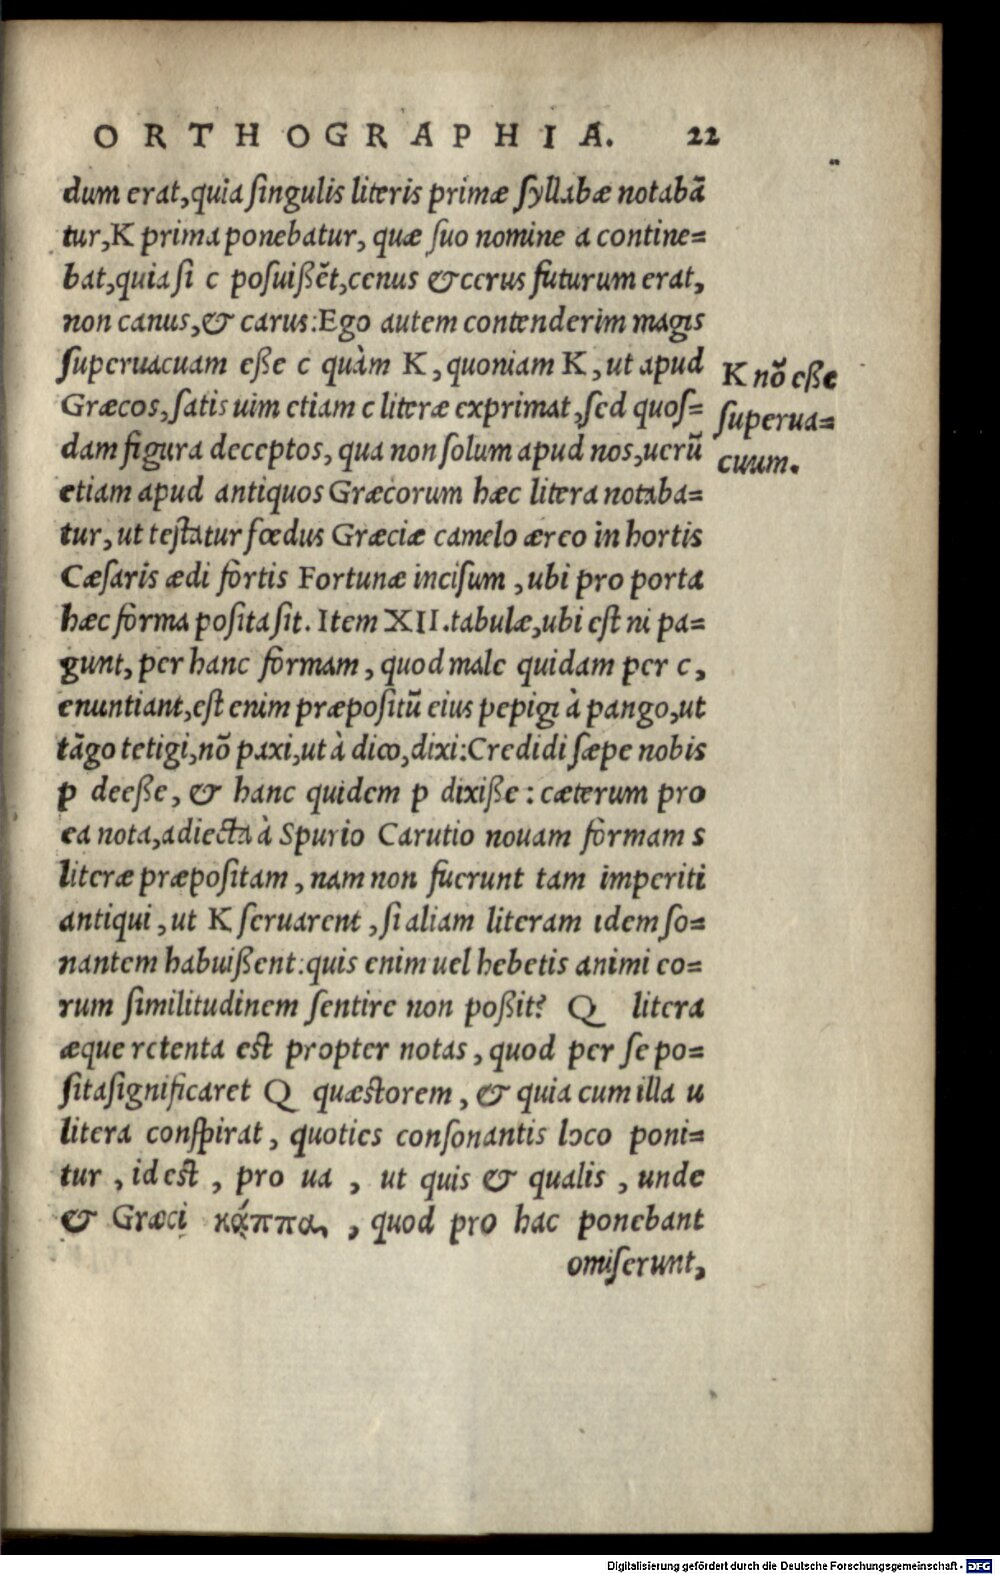 ORTHOGRAPHIA. 22
dum erat, quia ſingulis literis primæ ſyllabæ notabā
tur, K prima ponebatur, quæ ſuo nomine a contine=
bat, quia ſi c poſuißẽt, cenus & cerus futurum erat,
non canus, & carus: Ego autem contenderim magis
ſuperuacuam eße c quàm K, quoniam K, ut apud
Græcos, ſatis uim etiam c literæ exprimat, ſed quoſ=
dam figura deceptos, qua non ſolum apud nos, uerũ
etiam apud antiquos Græcorum hæc litera notaba=
tur, ut teſtatur fœdus Græciæ camelo æreo in hortis
Cæſaris ædi fortis Fortunæ inciſum, ubi pro porta
hæc forma poſita ſit. Item XII. tabulæ, ubi eſt ni pa=
gunt, per hanc formam, quod male quidam per c,
enuntiant, eſt enim præpoſitũ eius pepigi à pango, ut
tāgo tetigi, nõ paxi, ut à dico, dixi: Credidi ſæpe nobis
p deeße, & hanc quidem p dixiße: cæterum pro
ea nota, adiecta à Spurio Carutio nouam formam s
literæ præpoſitam, nam non fuerunt tam imperiti
antiqui, ut K ſeruarent, ſi aliam literam idem ſo=
nantem habuißent: quis enim uel hebetis animi eo=
rum ſimilitudinem ſentire non poßit? Q litera
æque retenta eſt propter notas, quod per ſe po=
ſita ſignificaret Q quæſtorem, & quia cum illa u
litera conſpirat, quoties conſonantis loco poni=
tur, id eſt, pro ua, ut quis & qualis, unde
& Græci κάππα, quod pro hac ponebant
omiſerunt,
K nõ eße
ſuperua=
cuum.
Digitalisierung gefördert durch die Deutsche Forschungsgemeinschaft - DFG